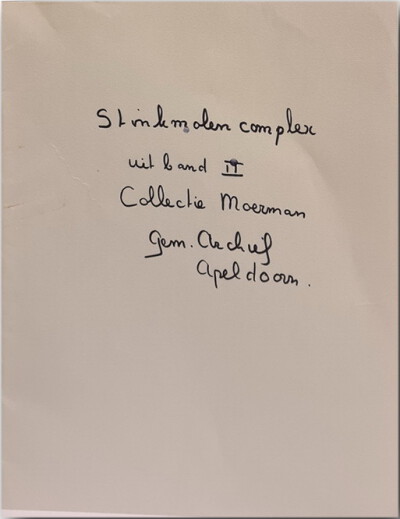 Stinkmolen complex
uit band II
Collectie Moerman
Gem. Archief
Apeldoorn.